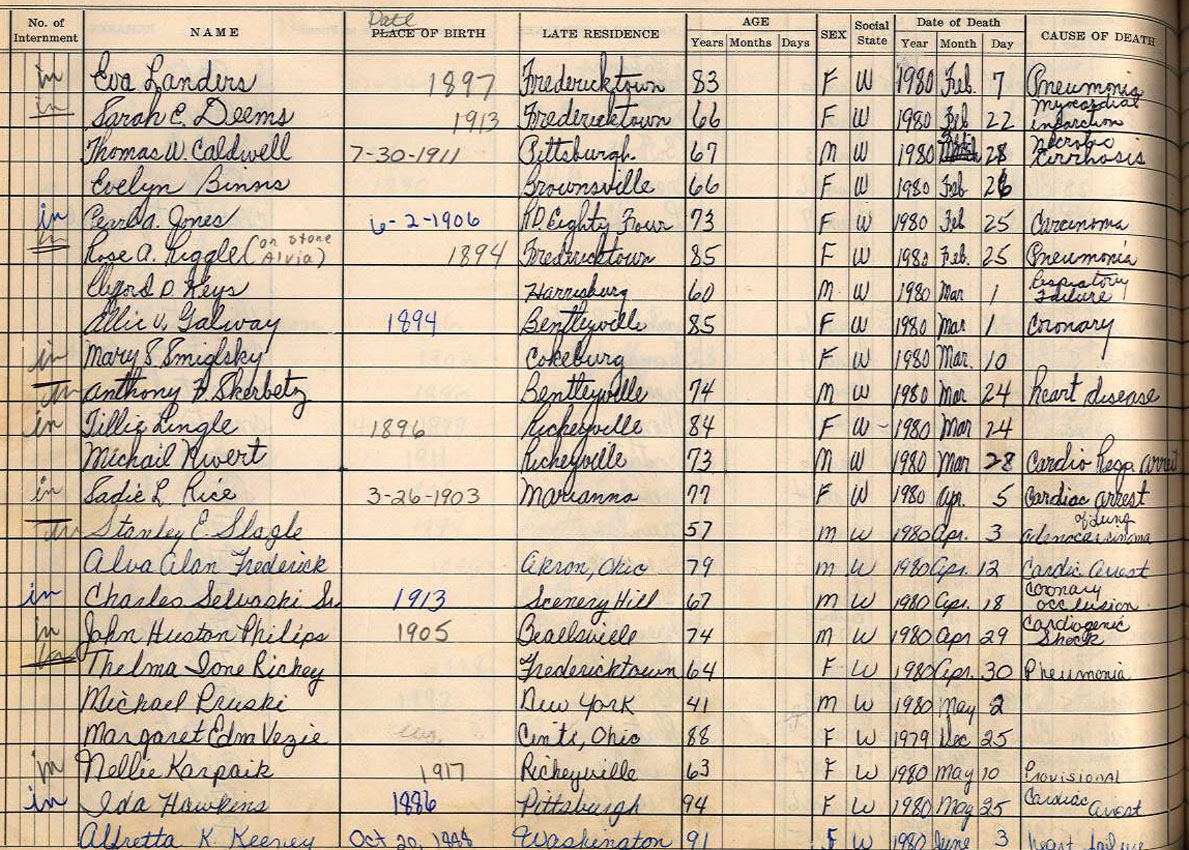 No. of Internment NAME Date PLACE OF BIRTH LATE RESIDENCE AGE Years Months Days SEX Social State Date of Death Year Month Day CAUSE OF DEATH
in Eva Landers 1897 Fredericktown 83 F W 1980 Feb. 7 Pneumonia
in Sarah E. Deems 1913 Fredericktown 66 F W 1980 Feb 22 myocardial infarction
Thomas W. Caldwell 7-30-1911 Pittsburgh. 67 M W 1980 Feb 28 Cirrhosis
Evelyn Binns Brownsville 66 F W 1980 Feb 26
in Pearl A. Jones 6-2-1906 R.D. Eighty Four 73 F W 1980 Feb 25 Carcinoma
in Rose A. Riggle (on stone Alvia) 1894 Fredericktown 85 F W 1980 Feb. 25 Pneumonia
D. Keys Harrisburg 60 M W 1980 Mar 1 Respiratory Failure
Allie V. Galway 1894 Bentleyville 85 F W 1980 Mar 1 Coronary
in Mary S. Smiglsky Cokeburg F W 1980 Mar. 10
in Anthony F. Skerbetz Bentleyville 74 M W 1980 Mar 24 heart disease
in Tillie Lingle 1896 Richeyville 84 F W - 1980 Mar 24
Michail Kivert Richeyville 73 M W 1980 Mar 28 Cardio Resp. arrest
in Sadie L. Rice 3-26-1903 Marianna 77 F W 1980 Apr. 5 Cardiac arrest
in Stanley E. Slagle 57 M W 1980 Apr. 3 adenocarcinoma of lung
Alva Alan Frederick Akron, Ohio 79 M W 1980 Apr. 12 Cardic Arrest
in Charles Selvoski Sr. 1913 Scenery Hill 67 M W 1980 Apr. 18 Coronary occlusion
in John Huston Philips 1905 Beallsville 74 M W 1980 Apr 29 Cardiogenic Shock
in Thelma Ione Richey Fredericktown 64 F W 1980 Apr. 30 Pneumonia
Michael Pruski New York 41 M W 1980 May 2
Margaret Edm Vezie Cinti, Ohio 88 F W 1979 Dec 25
in Nellie Karpaik 1917 Richeyville 63 F W 1980 May 10 Provisional
in Ida Hawkins 1886 Pittsburgh 94 F W 1980 May 25 Cardiac Arrest
Alfretta K. Keeney Oct 20, 1888 Washington 91 F W 1980 June 3 heart failure